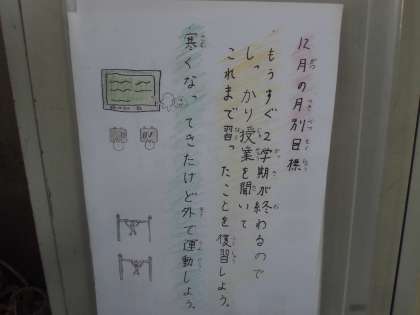 12月の月別目標
もうすぐ2学期が終わるので
しっかり授業を聞いて
これまで習ったことを復習しよう。
寒くなってきたけど外で運動しよう。